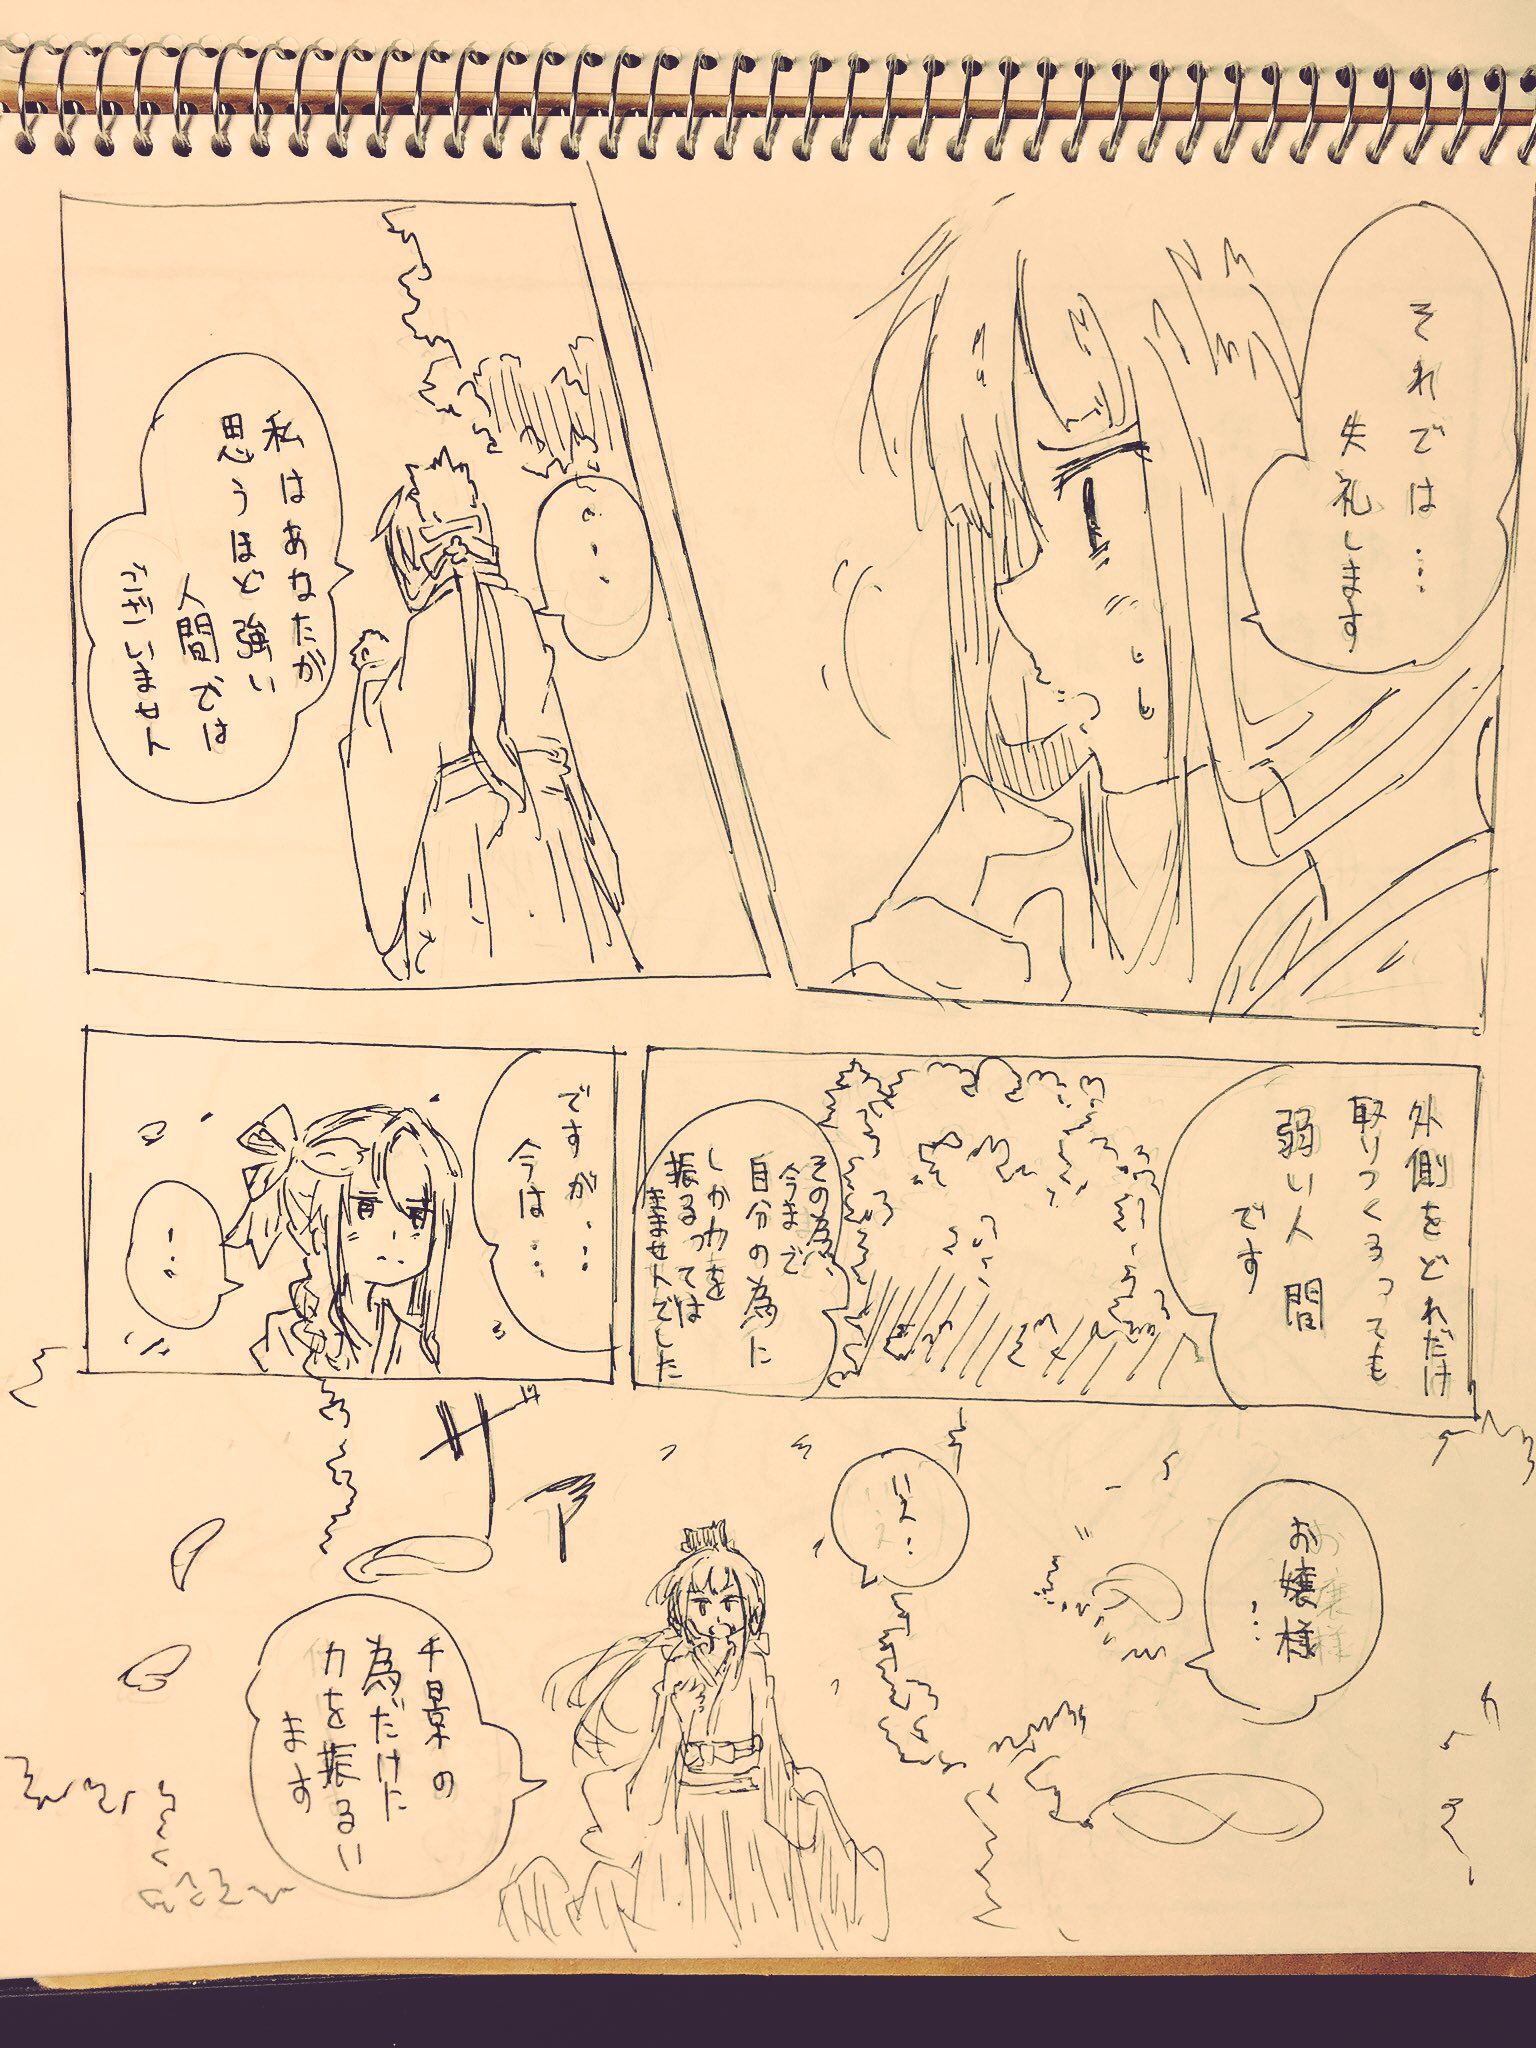 それでは…
失礼します
…
私はあなたが
思うほど強い
人間では
ございません
外側をどれだけ
取りつくろっても
弱い人間
です
その為、
今まで
自分の為に
しか力を
振るっては
来ませんでした
ですが…
今は…
…
お嬢様
…
え…
ザ
ァ
千景の
為だけに
力を振るい
ます